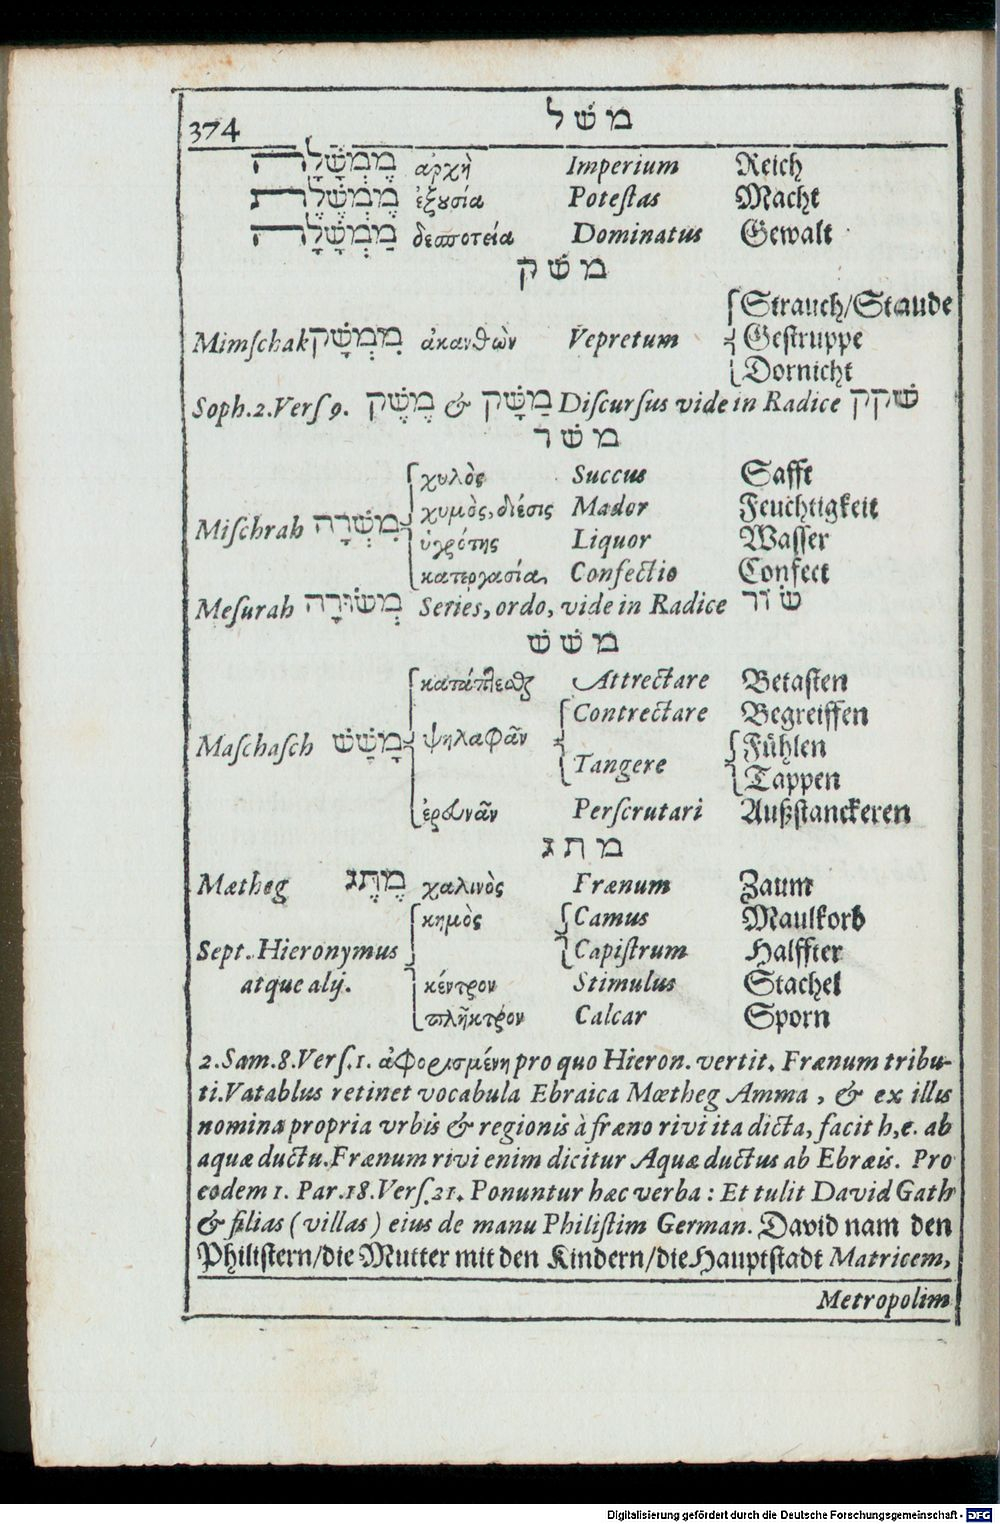 374 משל
מֶמְשָׁלָה ἀρχὴ Imperium Reich
מֶמְשֶׁלֶת ἐξουσία Poteſtas Macht
מַמְשָׁלָה δεσποτεία Dominatus Gewalt
משק
Strauch/Staude
Mimſchak מִמְשָׁק ἀκανθὼν Vepretum Geſtruppe
Dornicht
Soph.2.Verſ9. מֶשֶׁק & מַשָּׁק Diſcurſus vide in Radice שׁקק
משׁר
χυλὸς Succus Safft
χυμὸς, διέσις Mador Feuchtigkeit
Miſchrah מִשְׁרָה ὑγρότης Liquor Waſſer
κατεργασία Confectio Confect
Meſurah מְשׂוּרָה Series, ordo, vide in Radice שׂור
משׁשׁ
Attrectare Betaſten
Contrectare Begreiffen
Maſchaſch מָשַׁשׁ ψηλαφᾶν Fühlen
Tangere Tappen
ἐρευνᾶν Perſcrutari Außſtanckeren
מתג
Mætheg מֶתֶג χαλινὸς Frænum Zaum
κημὸς Camus Maulkorb
Sept. Hieronymus Capiſtrum Halffter
atque alij. κέντρον Stimulus Stachel
πλῆκτρον Calcar Sporn
2.Sam.8.Verſ.1. ἀφορισμένη pro quo Hieron. vertit. Frænum tribu-
ti. Vatablus retinet vocabula Ebraica Mœtheg Amma, & ex illis
nomina propria vrbis & regionis à fræno rivi ita dicta, facit h,e. ab
aquæ ductu. Frænum rivi enim dicitur Aquæ ductus ab Ebræis. Pro
eodem 1. Par.18.Verſ.21. Ponuntur hæc verba: Et tulit David Gath
& filias (villas) eius de manu Philiſtim German. David nam den
Philiſtern/die Mutter mit den Kindern/die Hauptſtadt Matricem,
Metropolim
Digitalisierung gefördert durch die Deutsche Forschungsgemeinschaft - DFG